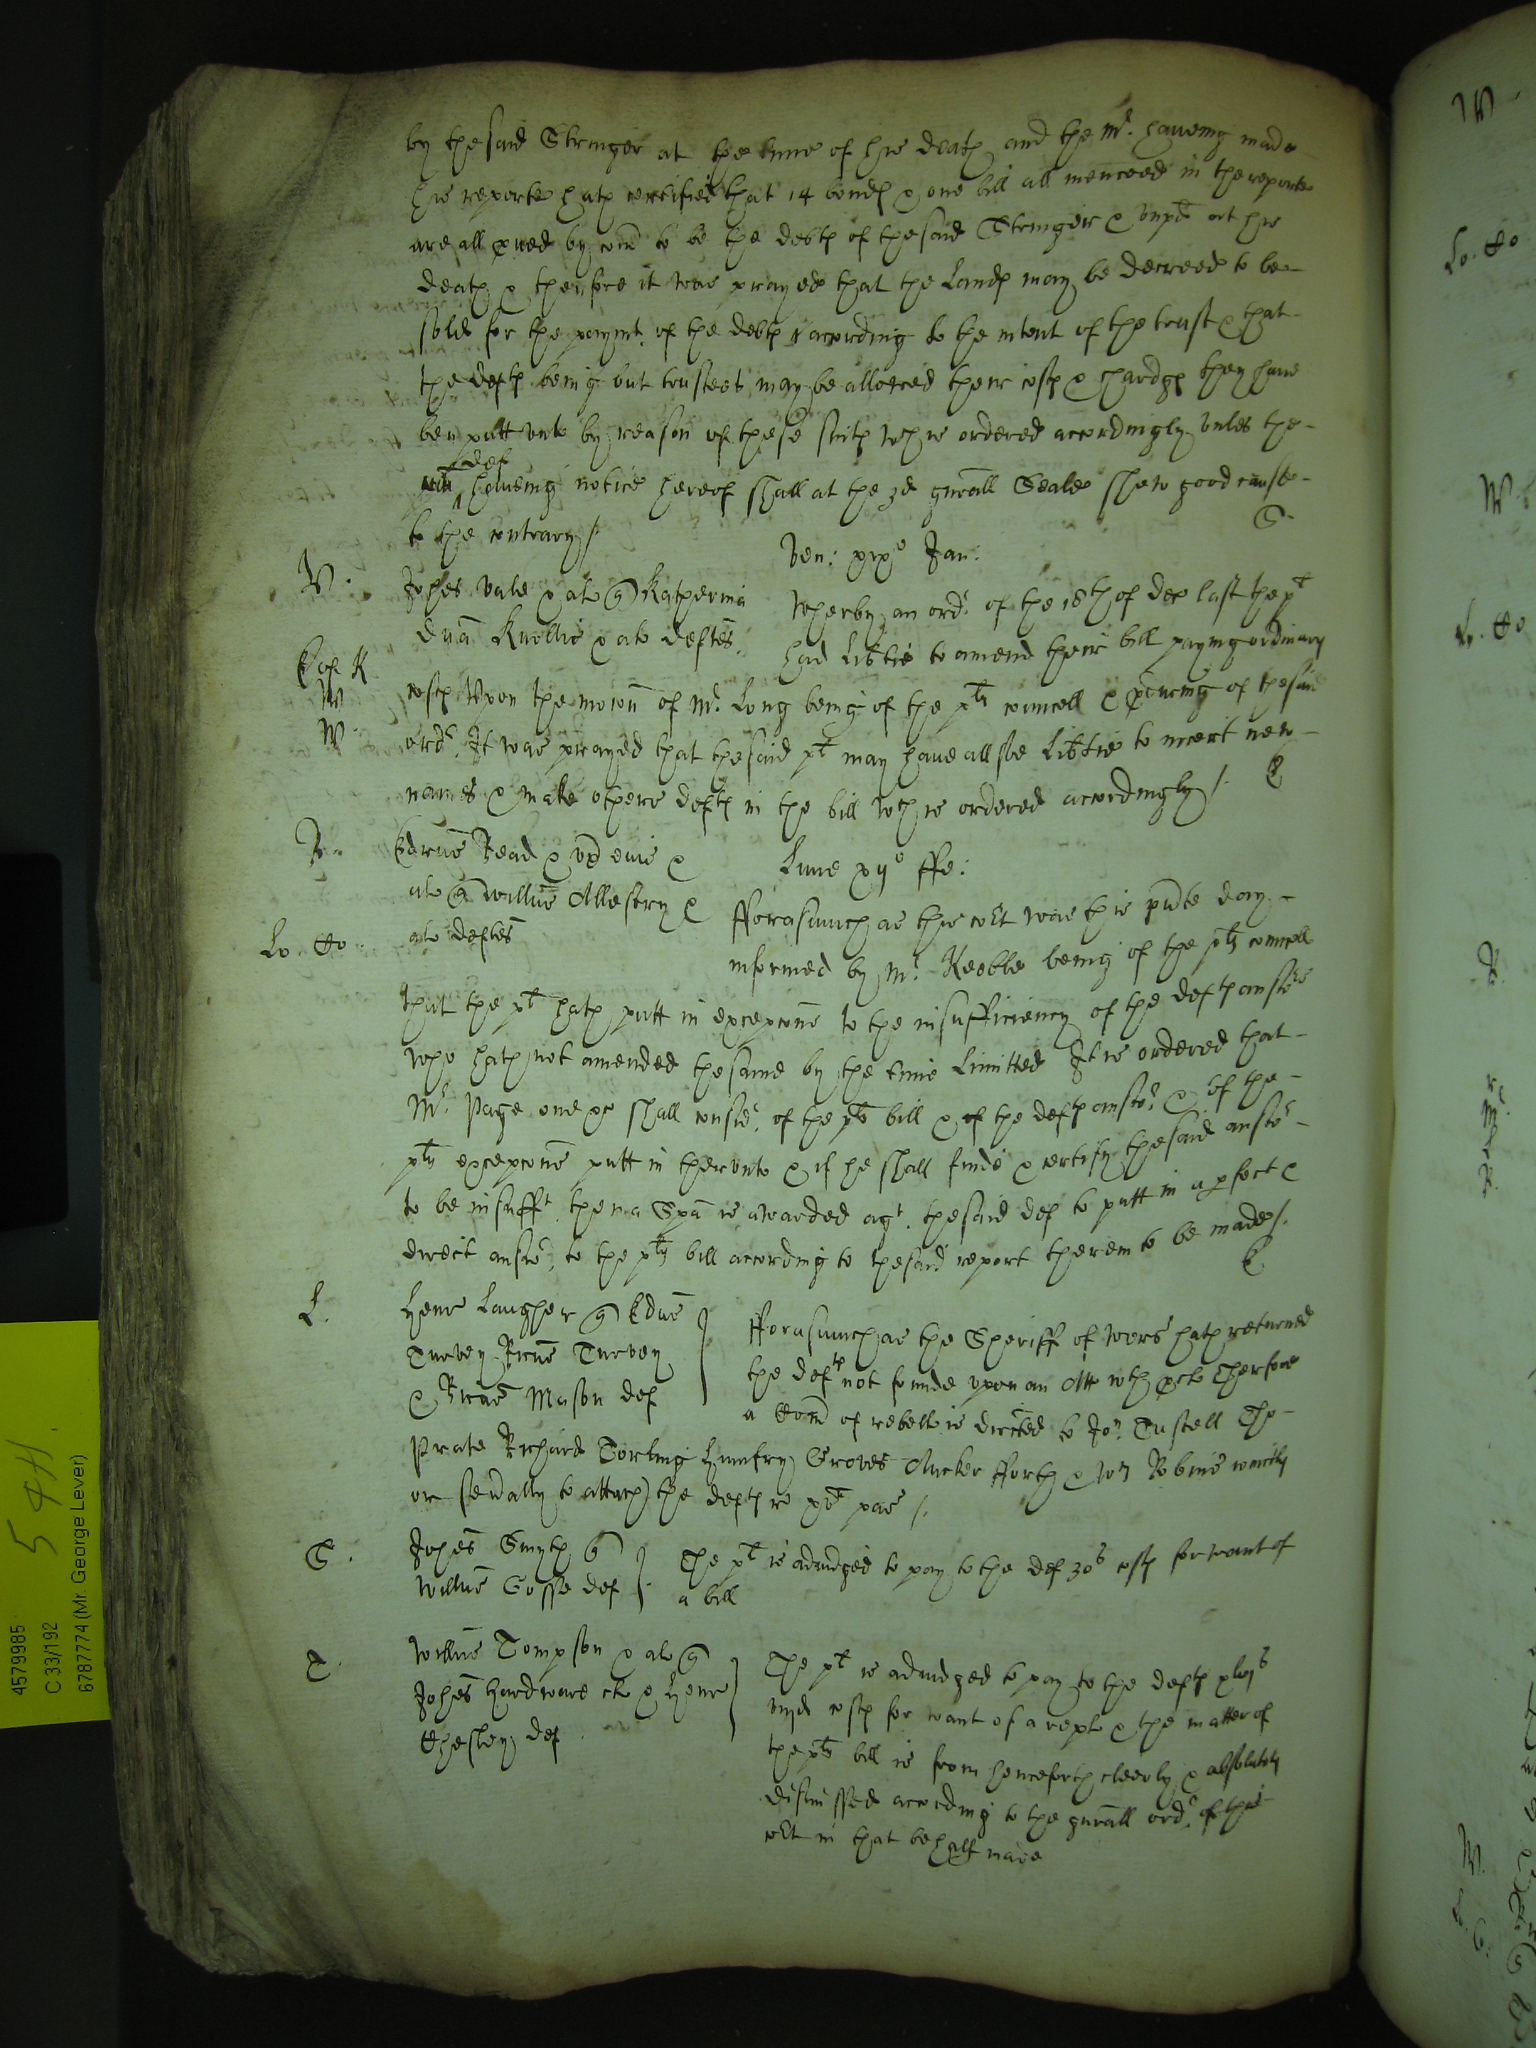 by the said Stringer at the time of his death and the Mr. haueing made
his reporte hath certified that 14 bonds & one bill all mencoed in the reporte
are all proved by com to be the debts of the said Stringer & unpd at his
death & therefore it was prayed that the Lands may be decreed to be
sold for the paymt. of the debts according to the intent of the trust & that
the defts being but trustees may be allowed their costs & chardgs they haue
ben putt unto by reason of these suits wch is ordered accordingly unles the
def
haueing notice hereof shall at the 3d gnrall Seale shew good cause
to the contrary /.
S.
W.
Johes Vale & al Katherina
Ven: xix° Jan:
Dna Knollis & al deftes.
Wherby an ordr. of the 18th of Dec last the plt
had Libtie to amend their bill paying ordinary
W
W
costs Upon the mocon of Mr. Long being of the plts councell & of the said
ordr. It was prayed that the said plt may haue alsoe Libtie to incert new
names & make others defts in the bill wch is ordered accordingly /.
R.
Edrus Read & &
Lune xii° ffe:
al Willus Allestry &
al deftes
Lo. Co.
fforasmuch as this cort was this pnte day
informed by Mr. Keeble being of the plts councell
that the plt hath putt in excepcons to the insufficiency of the defts answers
who hath not amended the same by the time Limitted It is ordered that
Mr. Page one &c shall considr. of the plts bill & of the defts answr. & of the
plts excepcons putt in therunto & if he shall finde & certify the said answr
to be insufft. then a Spa is awarded agt. the said def to putt in a perfect &
direct answr. to the plts bill according to the said report therein to be made /.
L.
Henr Laugher Edrus
Turvey Ricus Turvey
& Ricus Mason def
fforasmuch as the Sheriff of Wors hath returned
the defts not founde upon an Att wth procls Therfore
a Com of rebell is directed to Jo: Tustell Tho
Prate Richard Torling Humfry Groves Aucher fforth & Wm Robins iointly
or seually to attach the defts
S.
Johes Smyth
Willus Gosse def
The plt is adiudged to pay to the def 30s costs for want of
a bill
T.
Willus Tompson & al
Johes Hardware & Henr
Chesley def
The plt is adiudged to pay to the defts
costs for want of a repl & the matter of
the plts bill is from henceforth cleerly & absolutely
dismissed according to the gnrall ordr. of this
cort in that behalf made
5 4H.
4579985
C 33/192
6787774 (Mr. George Lever)
W
Lo. Co
W.
Lo. Co
R.
R.
W.